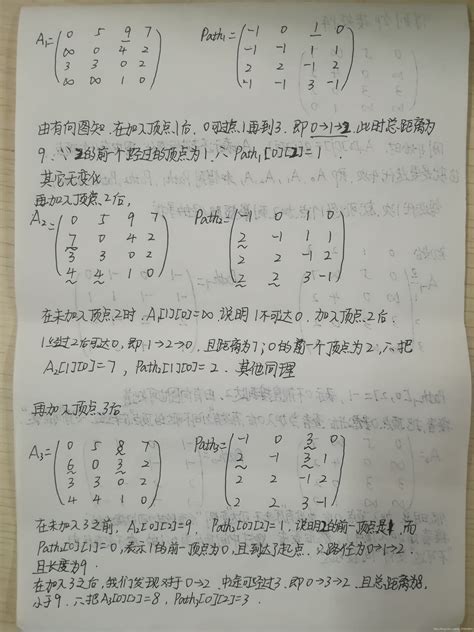 A₁= 0 5 9 7 Path₁= -1 0 1 0
∞ 0 4 2 -1 -1 1 1
3 3 0 2 2 2 -1 2
∞ ∞ 1 0 -1 -1 3 -1
由有向图知.在加入顶点1后,0可过点1再到3.即0→1→2.此时总距离为
9.∵2的前个经过的顶点为1,∴Path₁[0][2]=1.
其它无变化
再加入顶点2后,
A₂= 0 5 9 7 Path₂= -1 0 1 0
7 0 4 2 2 -1 1 1
3 3 0 2 2 2 -1 2
4 4 1 0 2 2 3 -1
在未加入顶点2时.A₁[1][0]=∞.说明1不可达0.加入顶点2后.
1经过2后可达0,即1→2→0,且距离为7;0的前一个顶点为2,∴把
A₂[1][0]=7,Path₂[1][0]=2.其他同理
再加入顶点3后
A₃= 0 5 8 7 Path₃= -1 0 3 0
6 0 3 2 2 -1 3 1
3 3 0 2 2 2 -1 2
4 4 1 0 2 2 3 -1
在未加入3之前,A₂[0][2]=9.Path₂[0][2]=1,说明2的前一顶点是1.而
Path₂[0][1]=0,表示1的前一顶点为0,且到达了起点.∴路径为0→1→2.
且长度为9.
在加入3之后,我们发现对于0→2.中途可经过3.即0→3→2.且总距离8,
小于9.∴把A₃[0][2]=8,Path₃[0][2]=3.